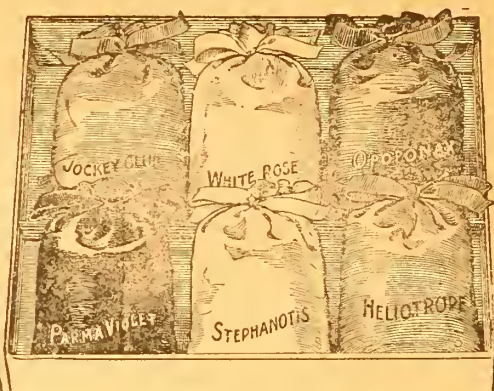 JOCKEY CLUB
WHITE ROSE
OPOPONAX
PARMA VIOLET
STEPHANOTIS
HELIOTROPE